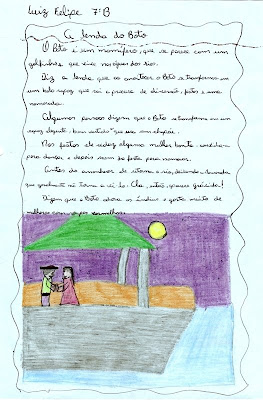 Luiz Felipe 7ªB
A lenda do Boto
O Boto é um mamífero, que se parece com um
golfinho, que vive nas águas dos rios.
Diz a lenda, que ao anoitecer o Boto se transforma em
um belo rapaz que sai a procura de diversão, festa e uma
namorada.
Algumas pessoas dizem que o Boto se transforma em um
rapaz elegante, bem vestido que usa um chapéu.
Nas festas ele seduz alguma mulher bonita, convidam
para dançar e depois saem da festa para namorar.
Antes do amanhecer ele retorna a rio, deixando a namorada
que geralmente não torna a vê-lo. Ela, então, grávida!
Dizem que o Boto adora as índias e gosta muito de
mulheres com roupas vermelhas.